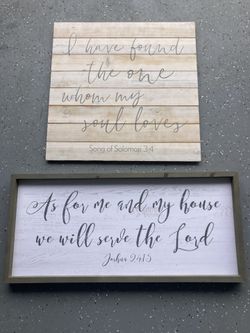 I have found
the one
whom my
soul loves
Song of Solomon 3:4
As for me and my house
we will serve the Lord
Joshua 24:15